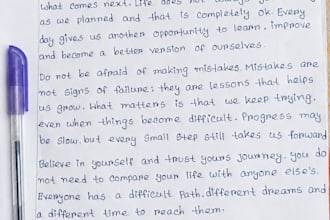 what comes next. Life does not always
as we planned and that is completely ok. Every
day gives us another opportunity to learn, improve
and become a better version of ourselves.
Do not be afraid of making mistakes. Mistakes are
not signs of failure; they are lessons that helps
us grow. What matters is that we keep trying,
even when things become difficult. Progress may
be slow, but every small step still takes us forward
Believe in yourself and trust yours journey. you do
not need to compare your life with anyone else's.
Everyone has a difficult path, different dreams and
a different time to reach them.